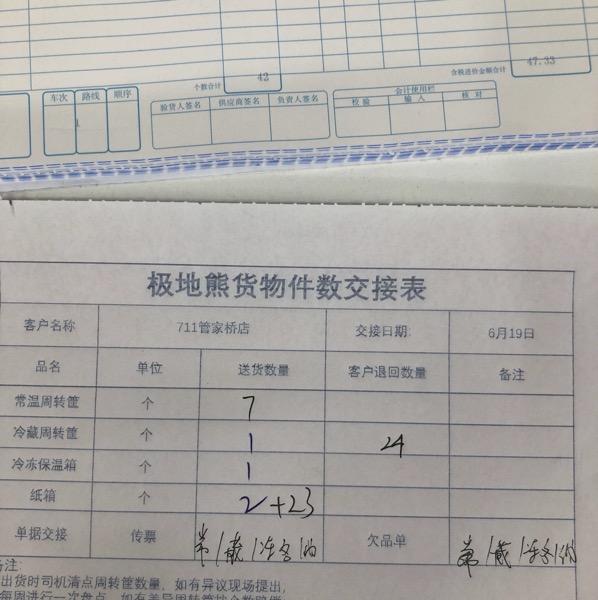 个数合计 42 含税进价金额合计 47.33
车次 路线 顺序
1
验货人签名 供应商签名 负责人签名
会计使用栏
校验 输入 核对
极地熊货物件数交接表
客户名称 711管家桥店 交接日期: 6月19日
品名 单位 送货数量 客户退回数量 备注
常温周转筐 个 7
冷藏周转筐 个 1 24
冷冻保温箱 个 1
纸箱 个 2+23
单据交接 传票 欠品单
备注:
出货时司机清点周转筐数量，如有异议现场提出，